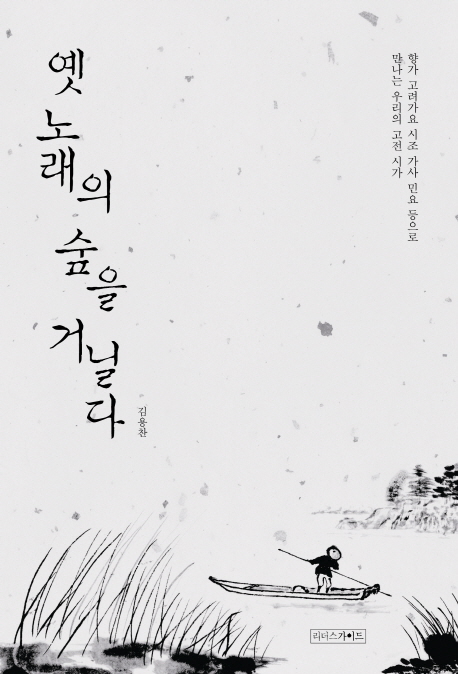 옛 노래의 숲을 거닐다
김용찬
향가 고려가요 시조 가사 민요 등으로
만나는 우리의 고전 시가
리더스가이드